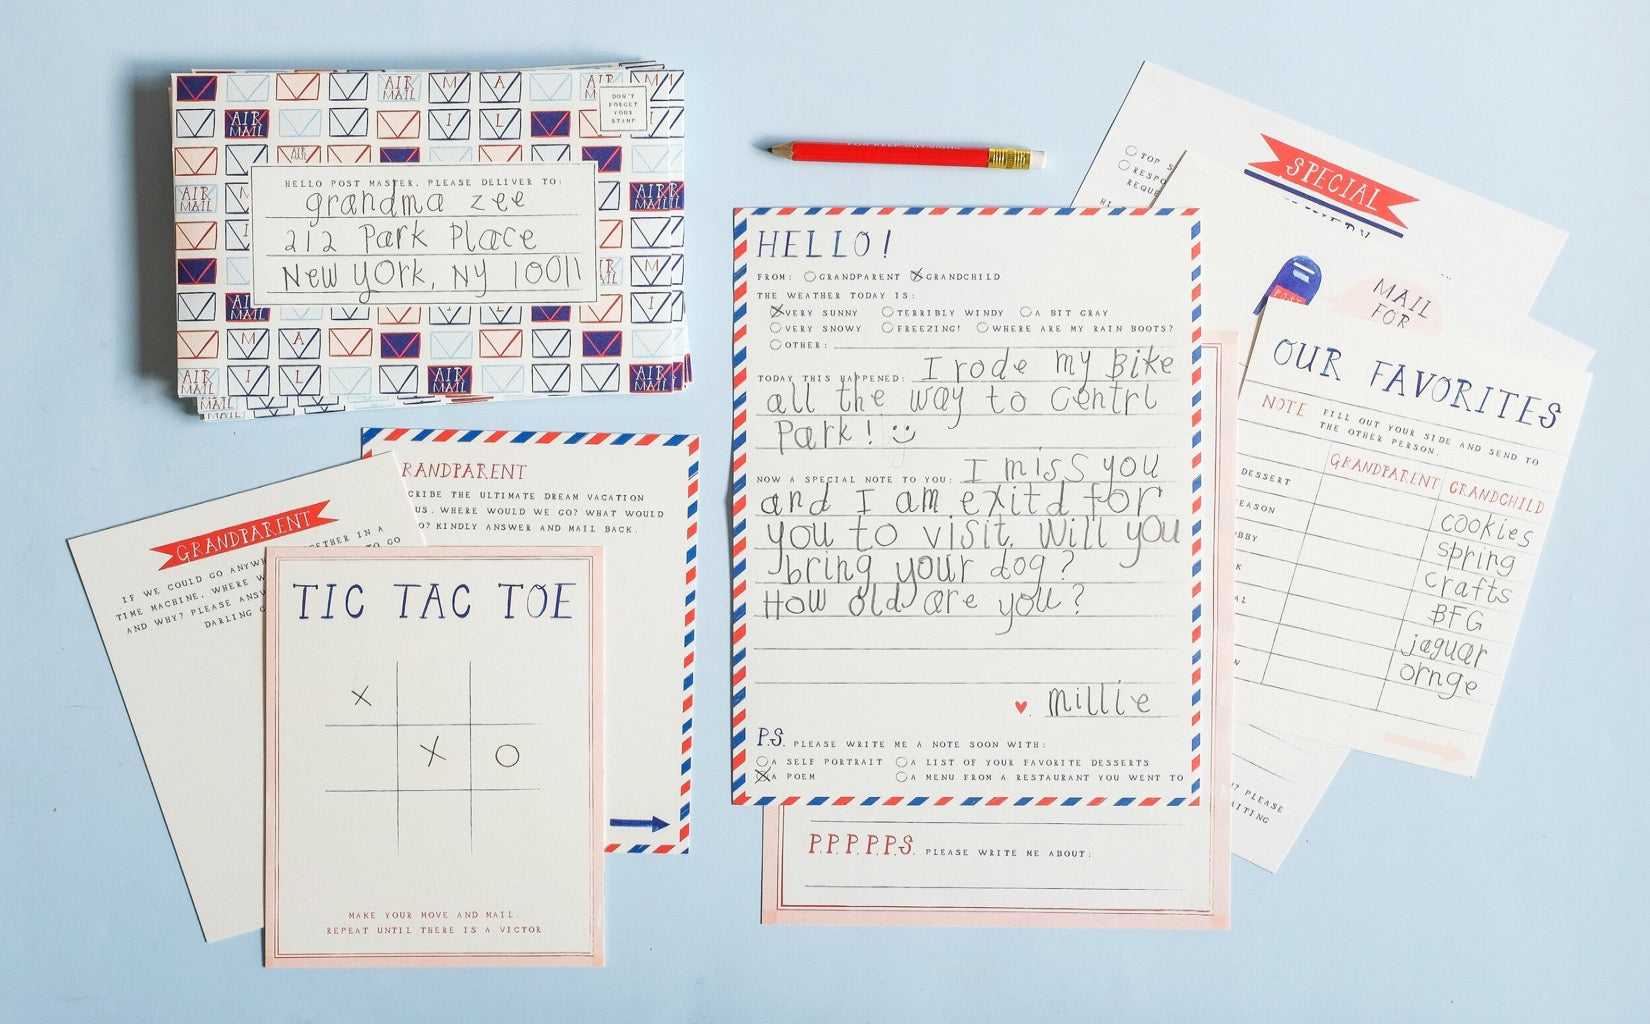 DON'T
FORGET
YOUR
STAMP
HELLO POST MASTER, PLEASE DELIVER TO:
grandma zee
212 Park Place
New York, NY 10011
AIR
MAIL
GRANDPARENT
IF WE COULD GO
TIME MACHINE, WHERE
AND WHY? PLEASE
DARLING
RANDPARENT
CRIBE THE ULTIMATE DREAM VACATION
US. WHERE WOULD WE GO? WHAT WOULD
O? KINDLY ANSWER AND MAIL BACK.
TIC TAC TOE
X
X O
MAKE YOUR MOVE AND MAIL.
REPEAT UNTIL THERE IS A VICTOR
HELLO!
FROM: GRANDPARENT GRANDCHILD
THE WEATHER TODAY IS:
VERY SUNNY TERRIBLY WINDY A BIT GRAY
VERY SNOWY FREEZING! WHERE ARE MY RAIN BOOTS?
OTHER:
TODAY THIS HAPPENED: I rode my Bike
all the way to Centrl
Park!
NOW A SPECIAL NOTE TO YOU: I miss you
and I am exitd for
you to visit. Will you
bring your dog?
How old are you?
millie
P.S. PLEASE WRITE ME A NOTE SOON WITH:
A SELF PORTRAIT A LIST OF YOUR FAVORITE DESSERTS
A POEM A MENU FROM A RESTAURANT YOU WENT TO
P.P.P.P.P.S. PLEASE WRITE ME ABOUT:
TOP S
RESPO
REQUE
SPECIAL
MAIL
FOR
OUR FAVORITES
NOTE FILL OUT YOUR SIDE AND SEND TO
THE OTHER PERSON
GRANDPARENT GRANDCHILD
DESSERT cookies
EASON spring
BBY crafts
K BFG
AL jaguar
W ornge
? PLEASE
AITING